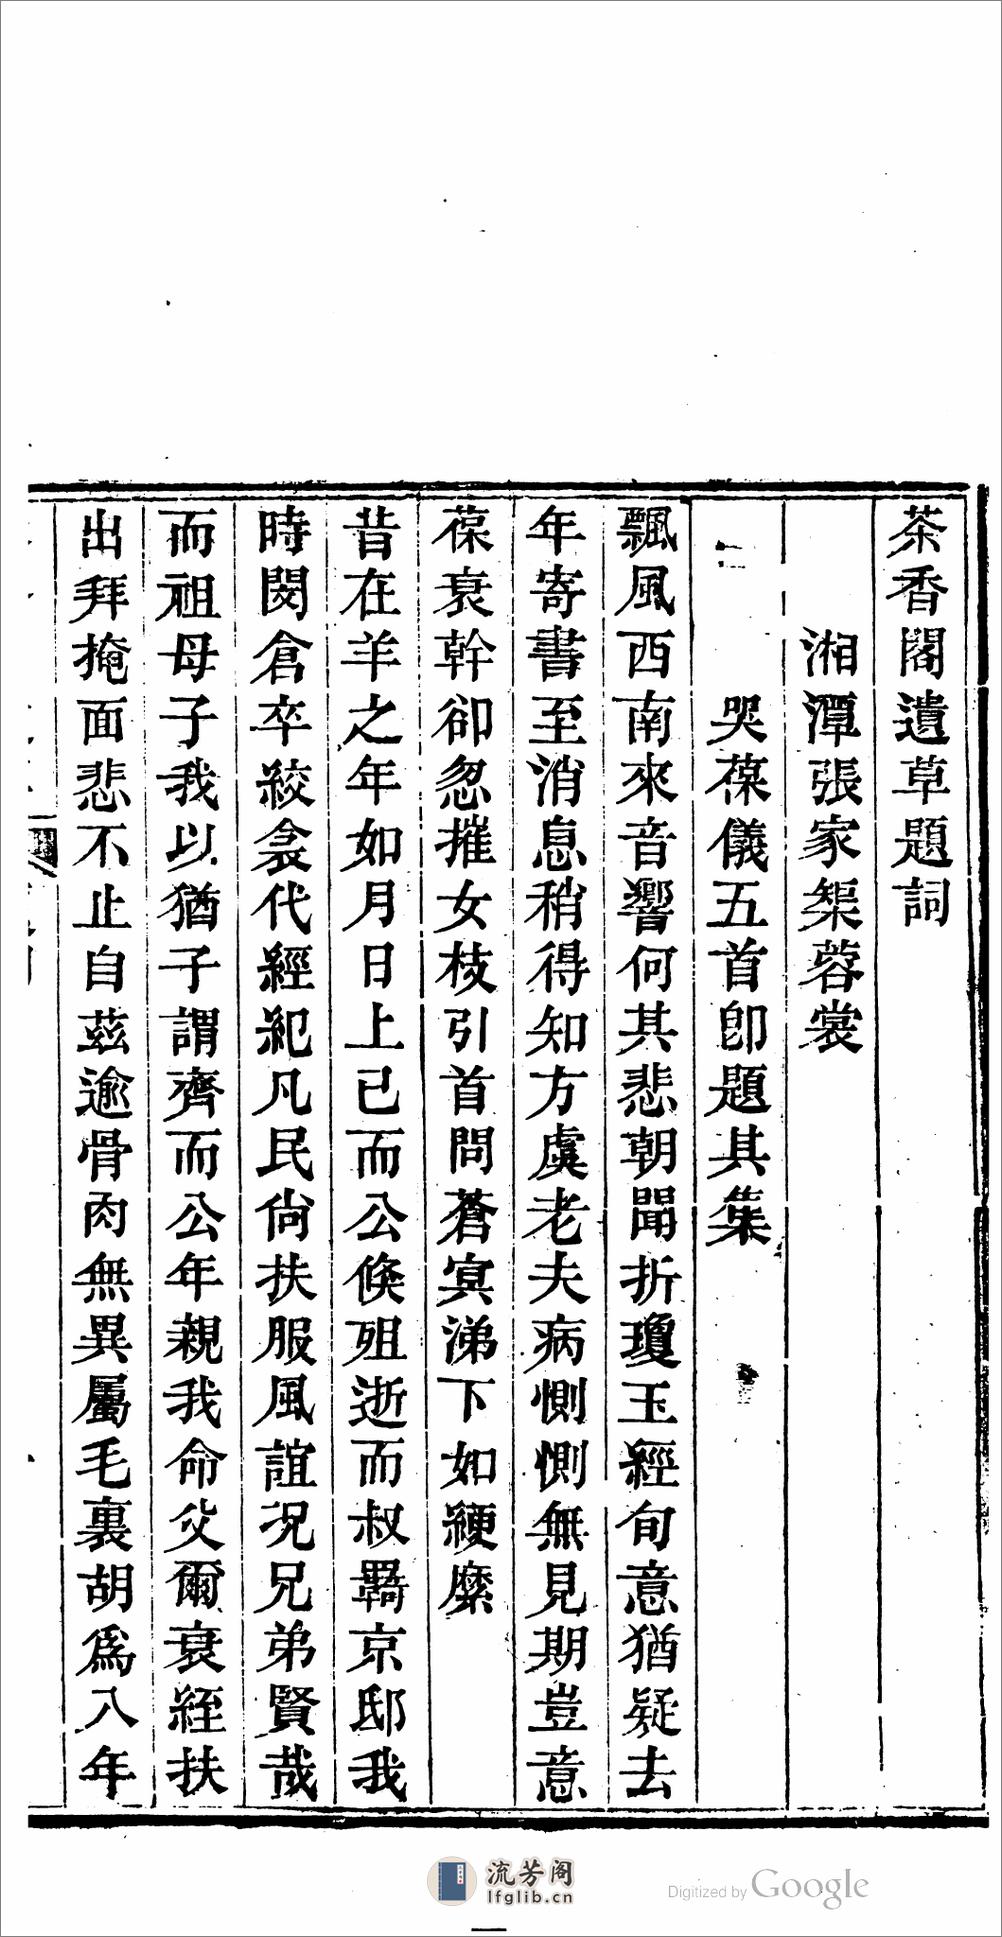 茶香閣遺草題詞
湘潭張家榘蓉裳
哭葆儀五首卽題其集
飄風西南來音響何其悲朝聞折瓊玉經旬意猶疑去
年寄書至消息稍得知方虞老夫病惻惻無見期豈意
葆衰幹卻忽摧女枝引首問蒼冥涕下如綆縻
昔在羊之年如月日上巳而公倏殂逝而叔羇京邸我
時閔倉卒絞衾代經紀凡民尙扶服風誼况兄弟賢哉
而祖母子我以猶子謂齊而公年親我命父爾衰絰扶
出拜掩面悲不止自茲逾骨肉無異屬毛裏胡爲八年
流芳阁
lfglib.cn
Digitized by Google